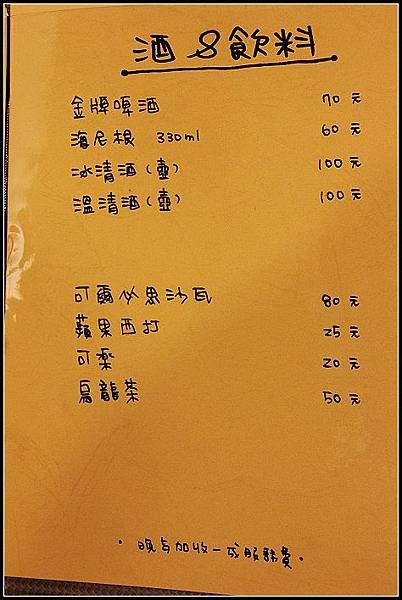 酒 & 飲料
金牌啤酒 70 元
海尼根 330ml 60 元
冰清酒(壺) 100 元
溫清酒(壺) 100 元
可爾必思沙瓦 80 元
蘋果西打 25 元
可樂 20 元
烏龍茶 50 元
• 晚上加收一成服務費 •